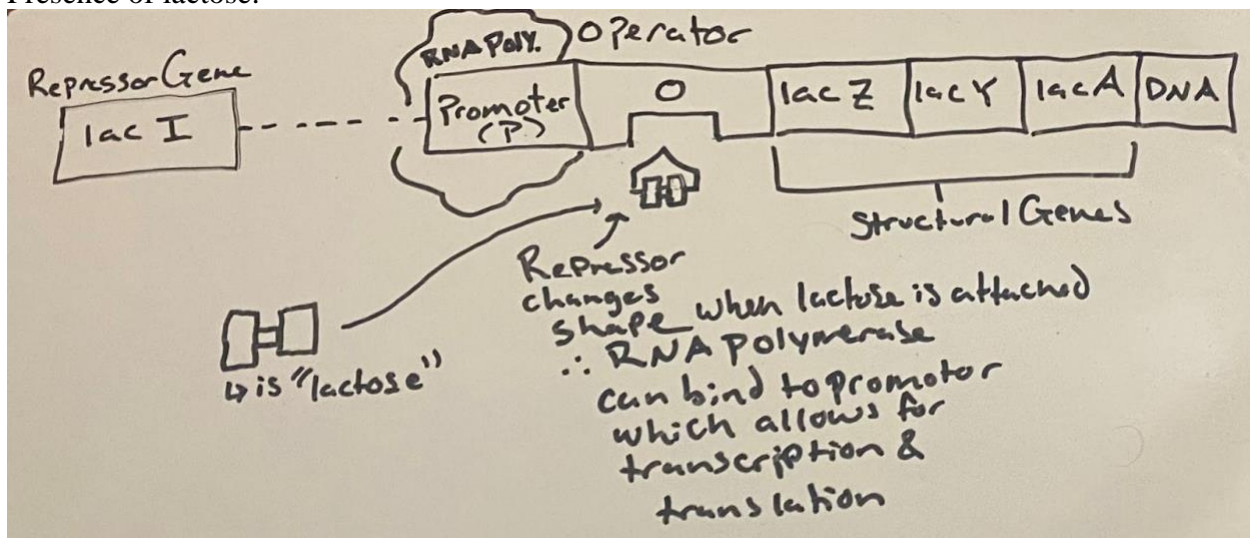 Presence of lactose:
RNA Poly.
Operator
Repressor Gene
lac I
Promoter
(P)
O
lac Z
lac Y
lac A
DNA
Structural Genes
Repressor
changes
shape when lactose is attached
∴ RNA Polymerase
can bind to promotor
which allows for
transcription &
translation
↳ is "lactose"